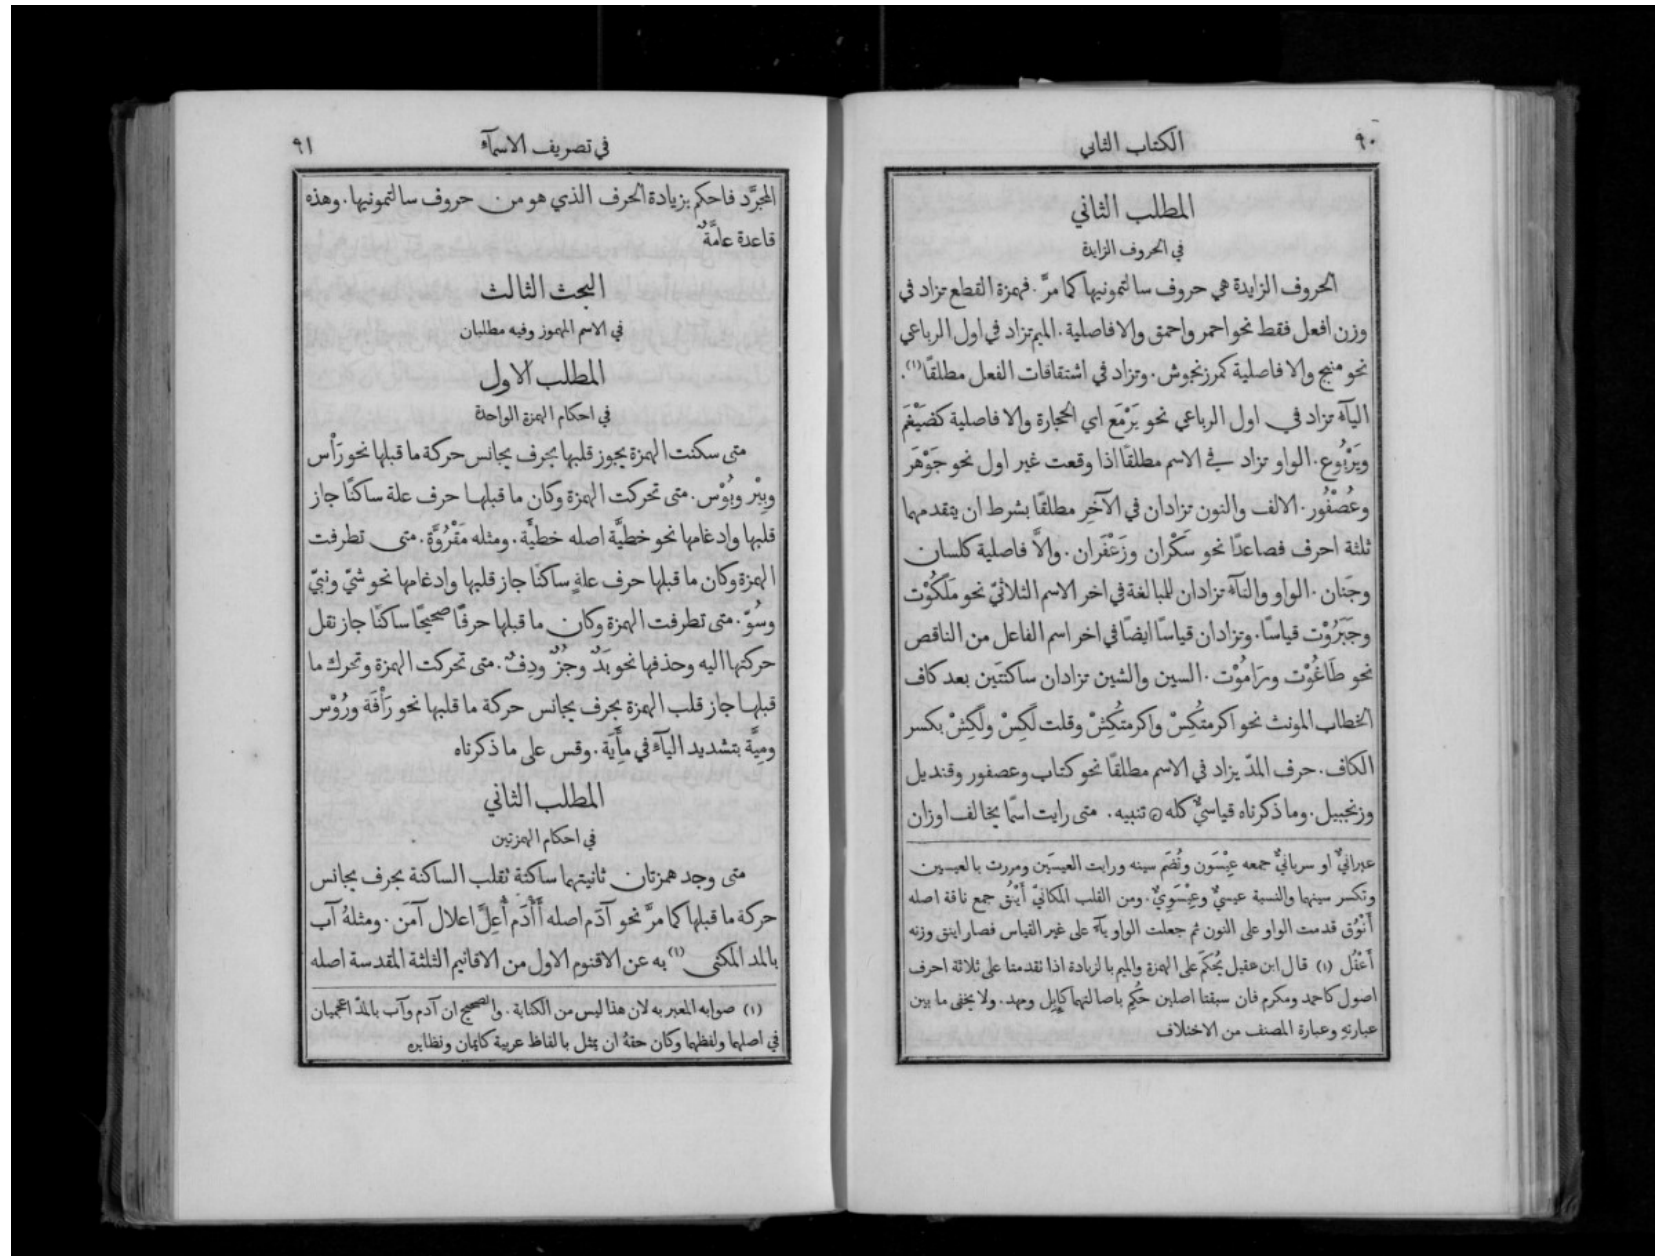 ٩٠
الكتاب الثاني
المطلب الثاني
في الحروف الزايدة
الحروف الزايدة هي حروف سالتمونيها كما مرَّ. فهمزة القطع تزاد في
وزن افعل فقط نحو احمر واحمق والا فاصلية. الميم تزاد في اول الرباعي
نحو منبج والا فاصلية كمرزنجوش. وتزاد في اشتقاقات الفعل مطلقًا (١).
اليآء تزاد في اول الرباعي نحو يَرْمَع اي الحجارة والا فاصلية كضَيْغَم
ويَرْبُوع. الواو تزاد في الاسم مطلقًا اذا وقعت غير اول نحو جَوْهَر
وعُصْفُور. الالف والنون تزادان في الآخِر مطلقًا بشرط ان يتقدمهما
ثلثة احرف فصاعدًا نحو سَكْران وزَعْفَران. والَّا فاصلية كلسان
وجَنان. الواو والتآء تزادان للمبالغة في اخر الاسم الثلاثيّ نحو مَلَكُوْت
وجَبَرُوْت قياسًا. وتزادان قياسًا ايضًا في اخر اسم الفاعل من الناقص
نحو طَاغُوْت ورَامُوْت. السين والشين تزادان ساكنتَين بعد كاف
الخطاب المونث نحو اكرمتكِسْ واكرمتكِشْ وقلت لَكِسْ ولَكِشْ بكسر
الكاف. حرف المدّ يزاد في الاسم مطلقًا نحو كتاب وعصفور وقنديل
وزنجبيل. وما ذكرناه قياسيٌّ كله ۞ تنبيه. متى رايت اسمًا يخالف اوزان
عبرانيٌّ او سريانيٌّ جمعه عِيْسَون وتُضَم سينه ورايت العيسَين ومررت بالعيسين
وتكسر سينهما والنسبة عيسيٌّ وعِيْسَوِيٌّ. ومن القلب المكانيّ أَيْنُق جمع ناقة اصله
أَنْوُق قدمت الواو على النون ثم جعلت الواو يآء على غير القياس فصار اينق وزنه
أَعْفُل (١) قال ابن عقيل يُحْكَم على الهمزة والميم بالزيادة اذا تقدمتا على ثلاثة احرف
اصول كاحمد ومكرم فان سبقتا اصلين حُكِم باصالتهما كإِبِل ومهد. ولا يخفى ما بين
عبارته وعبارة المصنف من الاختلاف
في تصريف الاسمآء
٩١
المجرَّد فاحكم بزيادة الحرف الذي هو من حروف سالتمونيها. وهذه
قاعدة عامَّةٌ
البحث الثالث
في الاسم المهموز وفيه مطلبان
المطلب الاول
في احكام الهمزة الواحدة
متى سكنت الهمزة يجوز قلبها بحرف يجانس حركة ما قبلها نحو رَاْس
وبِيْر وبُوْس. متى تحركت الهمزة وكان ما قبلها حرف علة ساكنًا جاز
قلبها وادغامها نحو خطيَّة اصله خطيْئَة. ومثله مَقْرُوَّة. متى تطرفت
الهمزة وكان ما قبلها حرف علةٍ ساكنًا جاز قلبها وادغامها نحو شيّ ونبيّ
وسُوّ. متى تطرفت الهمزة وكان ما قبلها حرفًا صحيحًا ساكنًا جاز نقل
حركتها اليه وحذفها نحو بَدٌ وجُزٌ ودِفٌ. متى تحركت الهمزة وتحرك ما
قبلها جاز قلب الهمزة بحرف يجانس حركة ما قلبها نحو رَاْفَة ورُوْس
ومِيَّة بتشديد اليآء في مِأَيَة. وقس على ما ذكرناه
المطلب الثاني
في احكام الهمزتين
متى وجد همزتان ثانيتهما ساكنة تقلب الساكنة بحرف يجانس
حركة ما قبلها كما مرَّ نحو آدَم اصله أَأْدَم أُعِلَّ اعلال آمَن. ومثلهُ آب
بالمد المكنى (١) به عن الاقنوم الاول من الاقانيم الثلثة المقدسة اصله
(١) صوابه المعبر به لان هذا ليس من الكناية. والصحيح ان آدم وآب بالمدّ اعجميان
في اصلهما ولفظهما وكان حقهُ ان يمثل بالفاظ عربية كايمان ونظايره